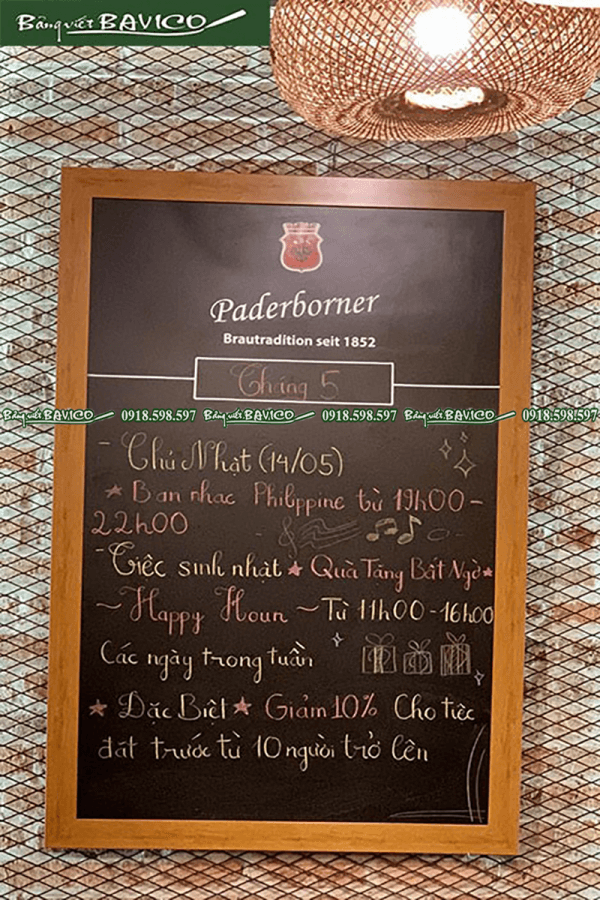 Bảng viết BAVICO
Paderborner
Brautradition seit 1852
Tháng 5
Bảng viết BAVICO 0918.598.597 Bảng viết BAVICO 0918.598.597 Bảng viết BAVICO 0918.598.597
- Chủ Nhật (14/05)
★ Ban nhạc Philippine từ 19h00 -
22h00
- Tiệc sinh nhật ★ Quà Tặng Bất Ngờ ★
~ Happy Hour ~ Từ 11h00 - 16h00
Các ngày trong tuần
★ Đặc Biệt ★ Giảm 10% Cho tiệc
đặt trước từ 10 người trở lên